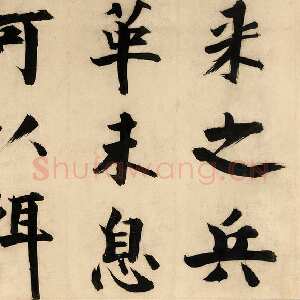 来之兵
革未息
可以弭
Shufawang.CN